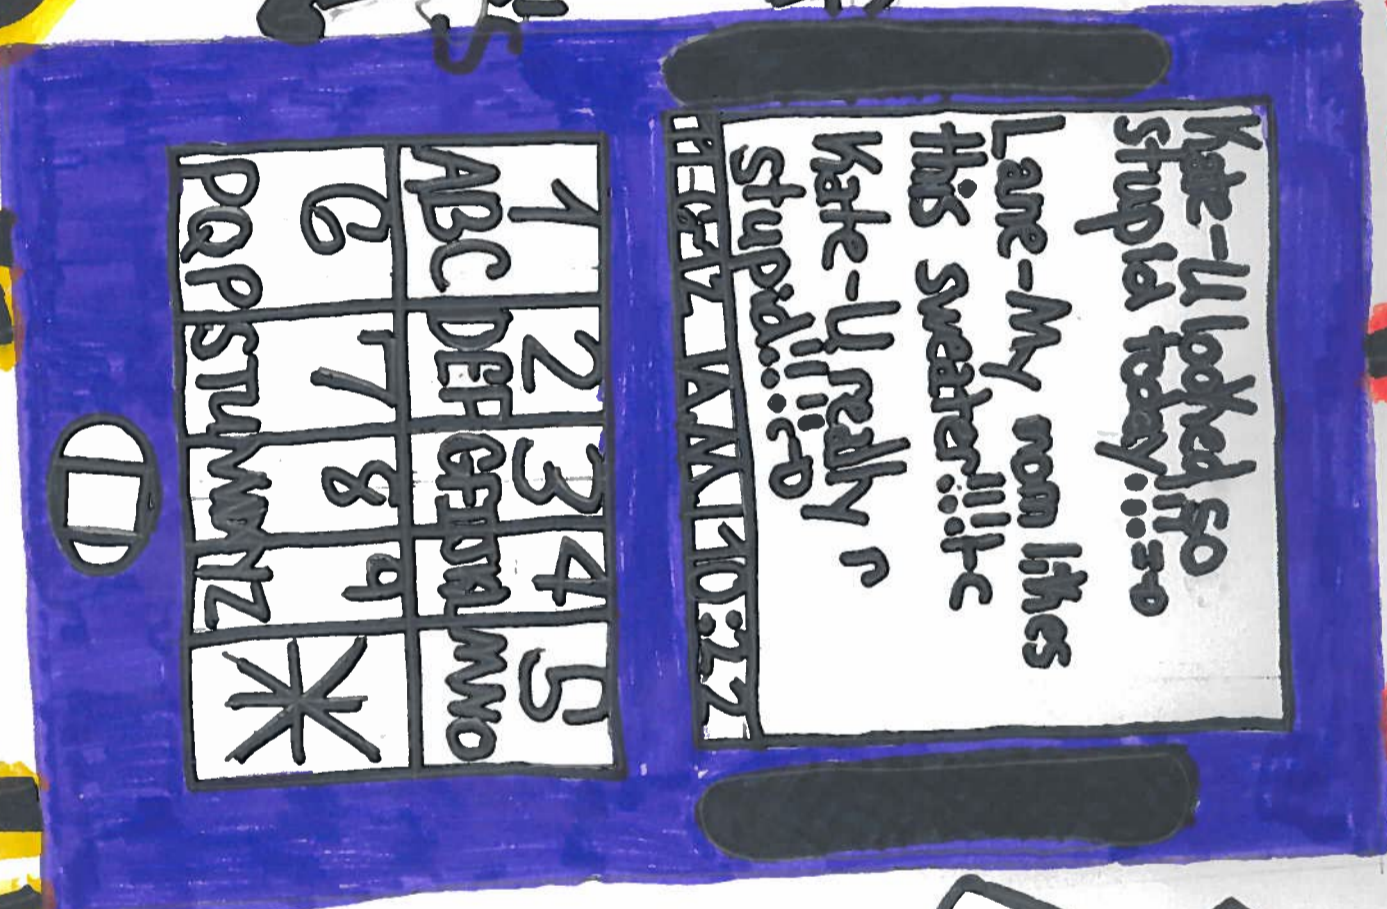 Kate-U looked so
stupid today!!!:-0
Lane-My mom likes
this sweater!!!:-c
Kate-U really r
stupid!!!:-0
AM 10:22
1 2 3 4 5
ABC DEF MNO
6 7 8 9 *
PQP STU